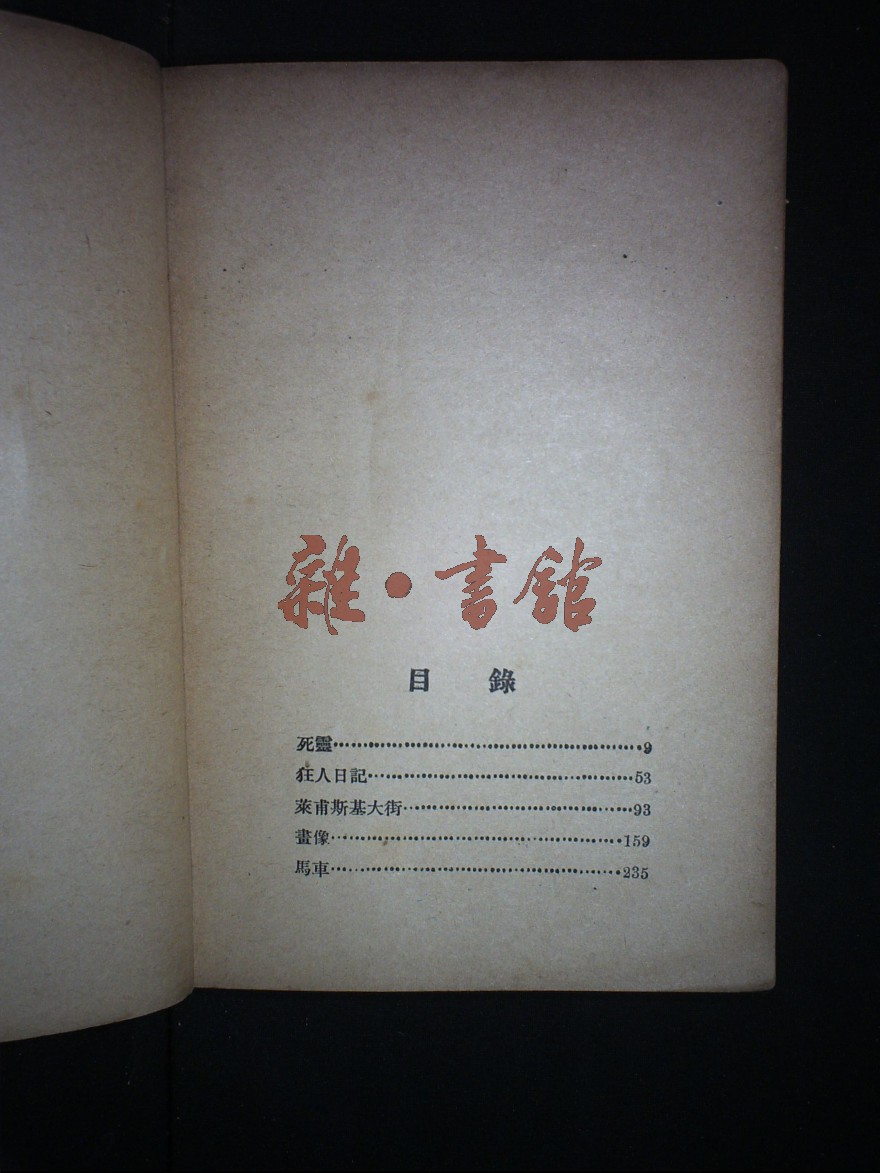 雜·書館
目錄
死靈……………………………………9
狂人日記……………………………53
萊甫斯基大街………………………93
畫像…………………………………159
馬車…………………………………235